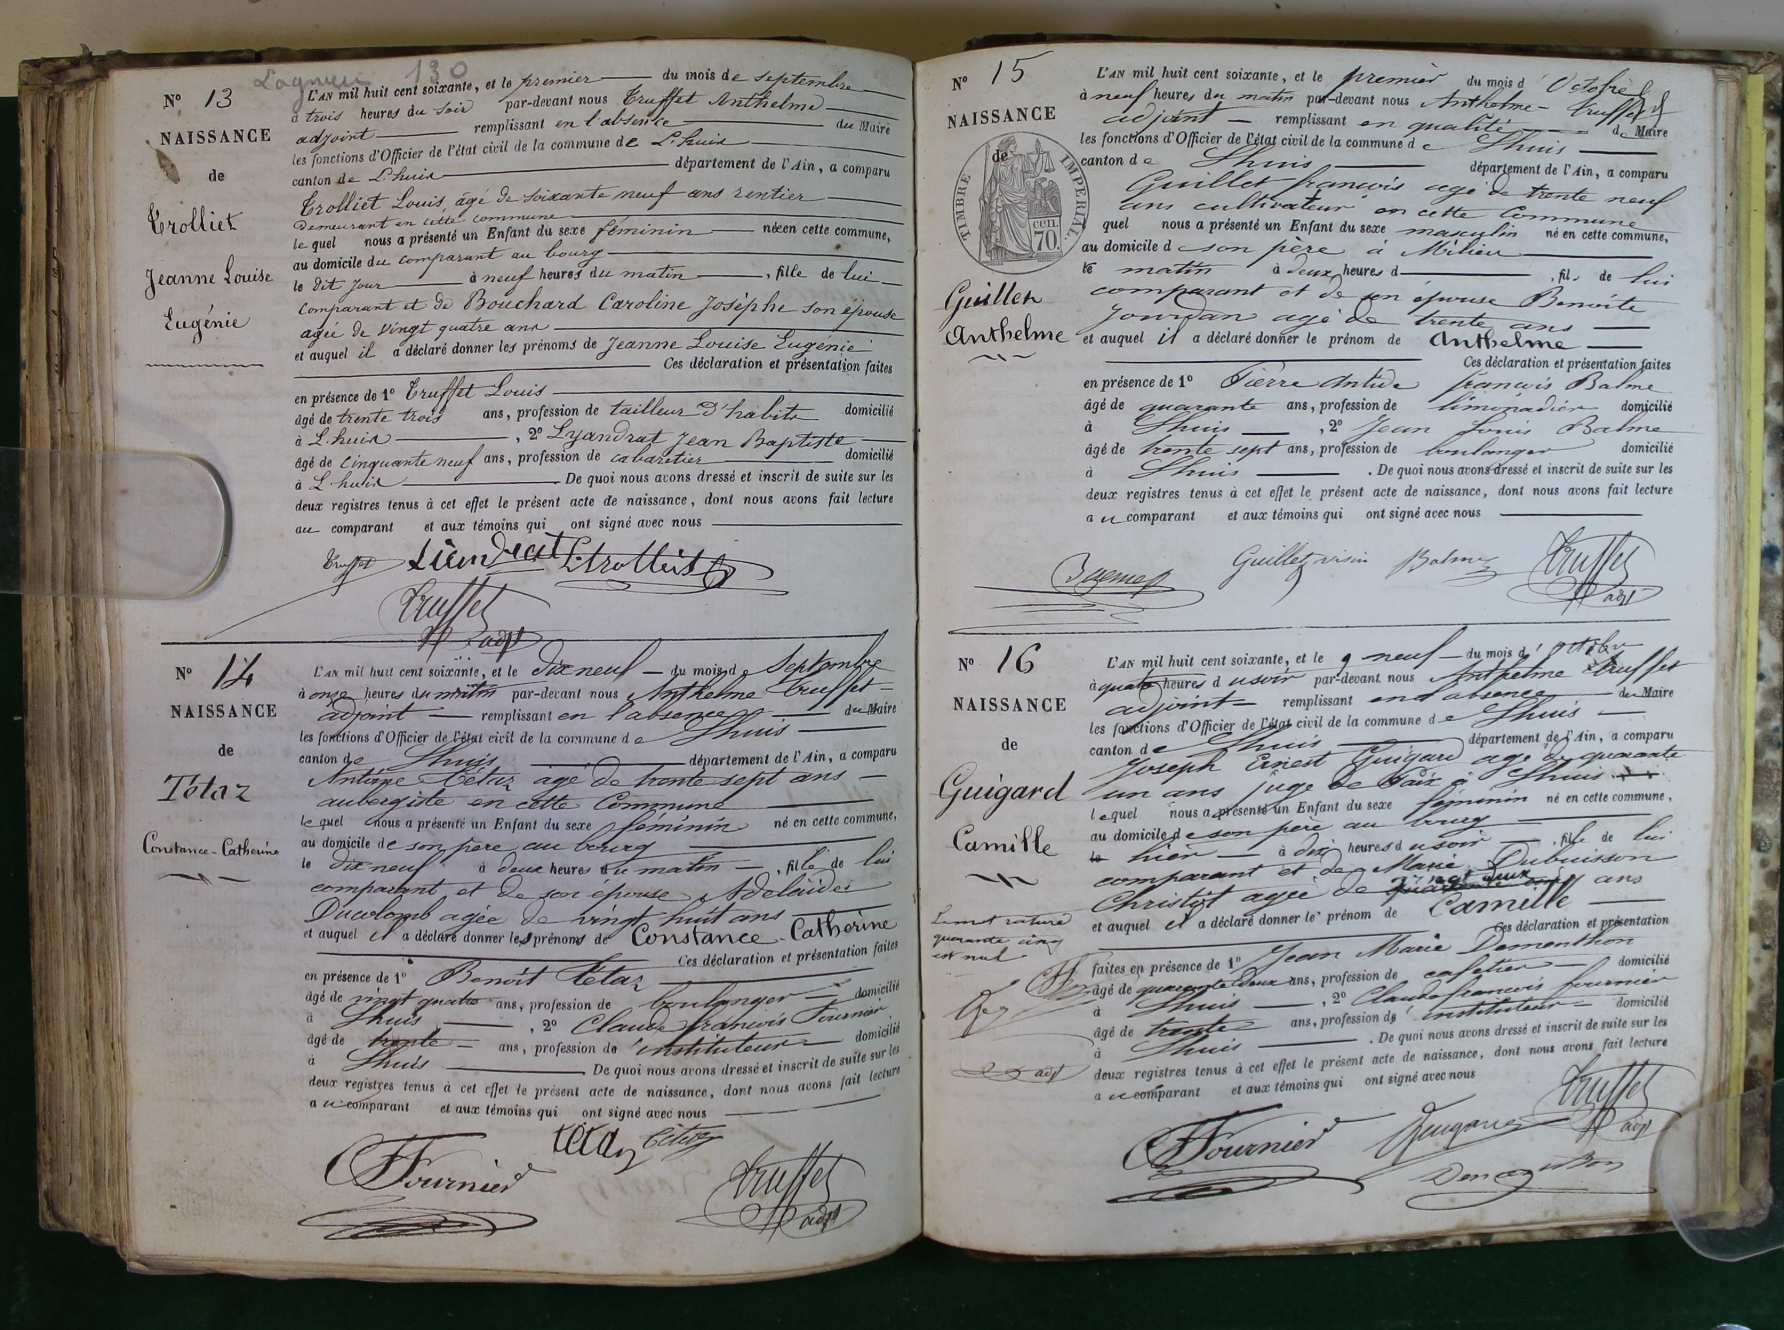 130
N° 13
NAISSANCE
de
Trolliet
Jeanne Louise
Eugénie
L'AN mil huit cent soixante, et le premier du mois de septembre
à trois heures du soir par-devant nous Truffet Anthelme
adjoint remplissant en l'absence du Maire
les fonctions d'Officier de l'état civil de la commune de L'huis
canton de L'huis département de l'Ain, a comparu
Trolliet Louis, âgé de soixante neuf ans rentier
Demeurant en cette commune
le quel nous a présenté un Enfant du sexe féminin née en cette commune,
au domicile du comparant au bourg
le dit jour à neuf heures du matin, fille de lui
comparant et de Bouchard Caroline Josèphe son épouse
agée de vingt quatre ans
et auquel il a déclaré donner les prénoms de Jeanne Louise Eugénie
Ces déclaration et présentation faites
en présence de 1° Truffet Louis
âgé de trente trois ans, profession de tailleur d'habits domicilié
à L'huis, 2° Lyandrat Jean Baptiste
âgé de cinquante neuf ans, profession de cabaretier domicilié
à L'huis De quoi nous avons dressé et inscrit de suite sur les
deux registres tenus à cet effet le présent acte de naissance, dont nous avons fait lecture
au comparant et aux témoins qui ont signé avec nous
Truffet Liandrat L. trolliet
Truffet
adjt
N° 14
NAISSANCE
de
Tétaz
Constance-Catherine
L'AN mil huit cent soixante, et le dix neuf du mois de septembre
à onze heures du matin par-devant nous Anthelme Truffet
adjoint remplissant en l'absence du Maire
les fonctions d'Officier de l'état civil de la commune de Lhuis
canton de Lhuis département de l'Ain, a comparu
Tétaz âgé de trente sept ans
aubergiste en cette Commune
le quel nous a présenté un Enfant du sexe féminin né en cette commune,
au domicile de son père au bourg
le dix neuf à deux heures du matin, fille de lui
comparant et de son épouse Adélaïde
Ducolomb agée de vingt huit ans
et auquel il a déclaré donner les prénoms de Constance-Catherine
Ces déclaration et présentation faites
en présence de 1° Benoît Tétaz
âgé de vingt quatre ans, profession de boulanger domicilié
à Lhuis, 2° Claude françois Fournier
âgé de trente ans, profession de instituteur domicilié
à Lhuis De quoi nous avons dressé et inscrit de suite sur les
deux registres tenus à cet effet le présent acte de naissance, dont nous avons fait lecture
au comparant et aux témoins qui ont signé avec nous
tétaz Tétaz
Fournier Truffet
adjt
N° 15
NAISSANCE
de
TIMBRE IMPERIAL
70 cen.
Guillet
Anthelme
L'AN mil huit cent soixante, et le premier du mois d'Octobre
à neuf heures du matin par-devant nous Anthelme Truffet
adjoint remplissant en qualité de Maire
les fonctions d'Officier de l'état civil de la commune de Lhuis
canton de Lhuis département de l'Ain, a comparu
Guillet françois agé de trente neuf
ans cultivateur en cette Commune
quel nous a présenté un Enfant du sexe masculin né en cette commune,
au domicile de son père à Milieu
le matin à deux heures d, fil de lui
comparant et de son épouse Benoite
Jourdan agé de trente ans
et auquel il a déclaré donner le prénom de Anthelme
Ces déclaration et présentation faites
en présence de 1° Pierre Antide françois Balme
âgé de quarante ans, profession de limonadier domicilié
à Lhuis, 2° Jean Louis Balme
âgé de trente sept ans, profession de boulanger domicilié
à Lhuis. De quoi nous avons dressé et inscrit de suite sur les
deux registres tenus à cet effet le présent acte de naissance, dont nous avons fait lecture
au comparant et aux témoins qui ont signé avec nous
Guillet Balme Truffet
adjt
N° 16
NAISSANCE
de
Guigard
Camille
Le mot raturé
quarante cinq
est nul
adjt
L'AN mil huit cent soixante, et le 9 neuf du mois d'octobre
à quatre heures du soir par-devant nous Anthelme Truffet
adjoint remplissant en l'absence du Maire
les fonctions d'Officier de l'état civil de la commune de Lhuis
canton de Lhuis département de l'Ain, a comparu
Joseph Ernest Guigard agé de quarante
un ans juge de Paix à Lhuis
lequel nous a présenté un Enfant du sexe féminin né en cette commune,
au domicile de son père au bourg
le hier à dix heures du soir, fille de lui
comparant et de Marie Dubuisson
Christot agée de vingt deux ans
et auquel il a déclaré donner le prénom de Camille
Ces déclaration et présentation
faites en présence de 1° Jean Marie Dementhon
âgé de quarante deux ans, profession de cafetier domicilié
à Lhuis, 2° Claude françois fournier
âgé de trente ans, profession de instituteur domicilié
à Lhuis. De quoi nous avons dressé et inscrit de suite sur les
deux registres tenus à cet effet le présent acte de naissance, dont nous avons fait lecture
au comparant et aux témoins qui ont signé avec nous
Truffet
adjt
Fournier Guigard